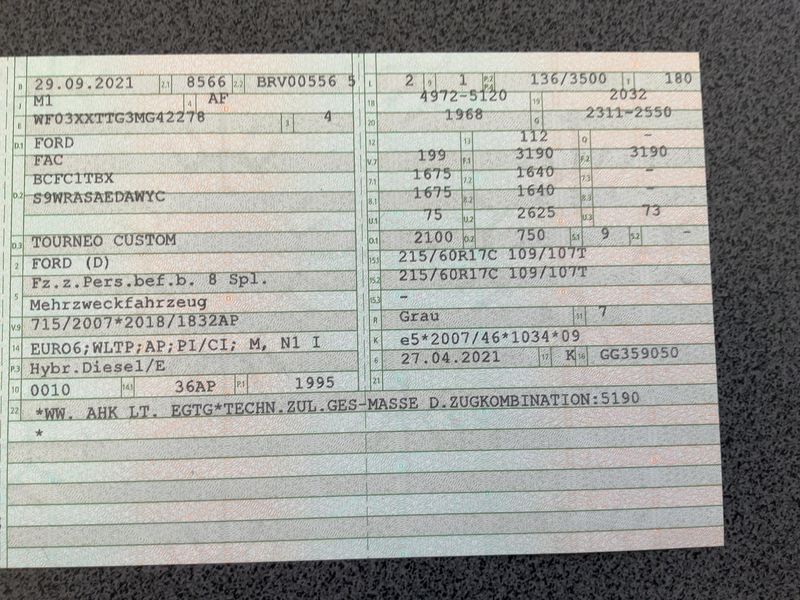 B 29.09.2021 2.1 8566 2.2 BRV00556 5
J M1 4 AF
E WF03XXTTG3MG42278 3 4
D.1 FORD
FAC
D.2 BCFC1TBX
S9WRASAEDAWYC
D.3 TOURNEO CUSTOM
2 FORD (D)
5 Fz.z.Pers.bef.b. 8 Spl.
Mehrzweckfahrzeug
V.9 715/2007*2018/1832AP
14 EURO6;WLTP;AP;PI/CI; M, N1 I
P.3 Hybr.Diesel/E
10 0010 14.1 36AP P.1 1995
L 2 9 1 P.2 P.4 136/3500 T 180
18 4972-5120 19 2032
20 1968 G 2311-2550
12 13 112 Q -
V.7 199 F.1 3190 F.2 3190
7.1 1675 7.2 1640 7.3 -
8.1 1675 8.2 1640 8.3 -
U.1 75 U.2 2625 U.3 73
O.1 2100 O.2 750 S.1 9 S.2 -
15.1 215/60R17C 109/107T
15.2 215/60R17C 109/107T
15.3 -
R Grau 11 7
K e5*2007/46*1034*09
6 27.04.2021 17 K 16 GG359050
21
22 *WW. AHK LT. EGTG*TECHN.ZUL.GES-MASSE D.ZUGKOMBINATION:5190
*